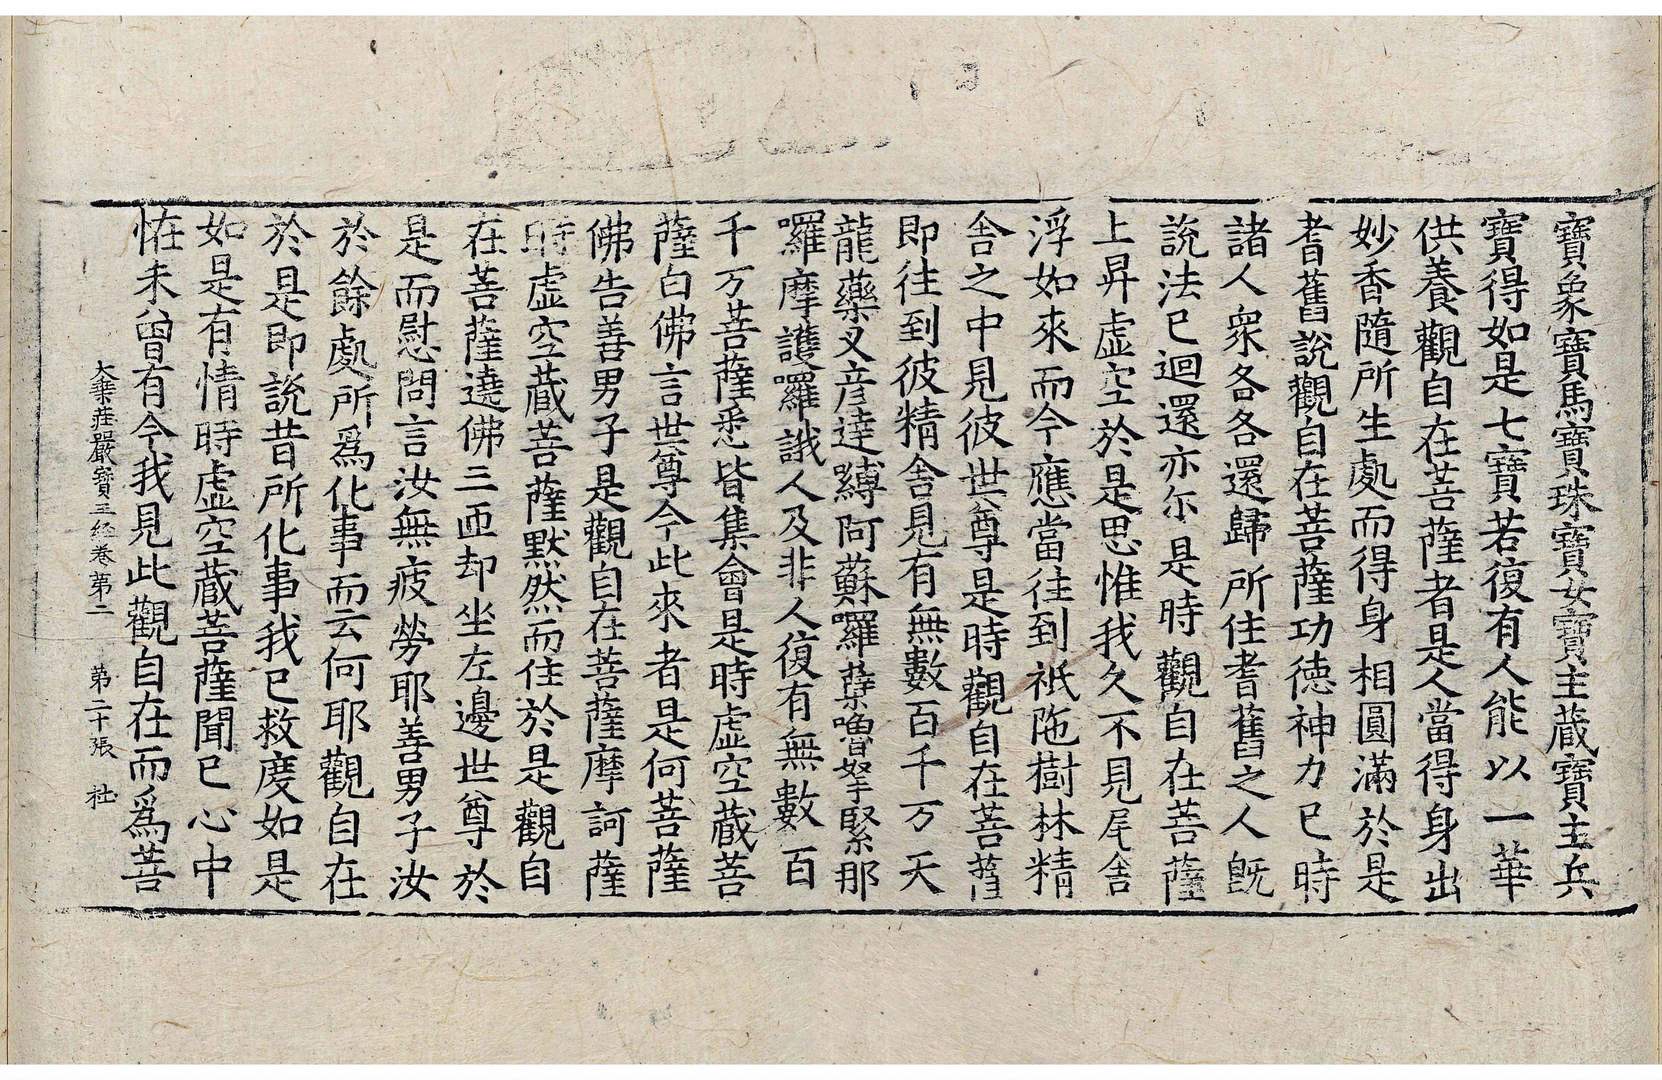 寶象寶馬寶珠寶女寶主蔵寶主兵
寶得如是七寶若復有人能以一華
供養觀自在菩薩者是人當得身出
妙香隨所生處而得身相圓滿於是
耆舊說觀自在菩薩功德神力已時
諸人衆各各還歸所住耆舊之人旣
說法已迴還亦尓是時觀自在菩薩
上昇虛空於是思惟我久不見尾舎
浮如來而今應當往到祇陁樹林精
舎之中見彼世尊是時觀自在菩薩
即往到彼精舎見有無數百千万天
龍藥叉彦達縛阿蘇囉櫱嚕拏緊那
囉摩護囉誐人及非人復有無數百
千万菩薩悉皆集會是時虛空蔵菩
薩白佛言世尊今此來者是何菩薩
佛告善男子是觀自在菩薩摩訶薩
時虛空蔵菩薩黙然而住於是觀自
在菩薩遶佛三帀却坐左邊世尊於
是而慰問言汝無疲勞耶善男子汝
於餘處所爲化事而云何耶觀自在
於是即說昔所化事我已救度如是
如是有情時虛空蔵菩薩聞已心中
恠未曾有今我見此觀自在而爲菩
大乗莊嚴寳王経卷第二 第二十張 杜